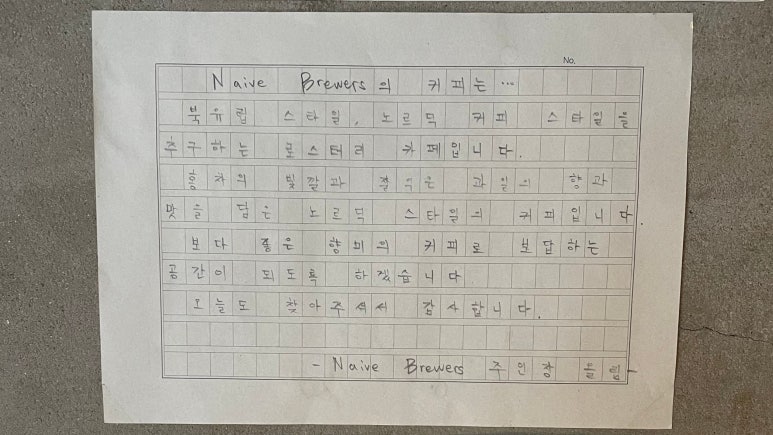 No.
Naive Brewers의 커피는...
북유럽 스타일, 노르딕 커피 스타일을
추구하는 로스터리 카페입니다.
홍차의 빛깔과 잘 익은 과일의 향과
맛을 담은 노르딕 스타일의 커피입니다.
보다 좋은 향미의 커피로 보답하는
공간이 되도록 하겠습니다
오늘도 찾아주셔서 감사합니다.
- Naive Brewers 주인장